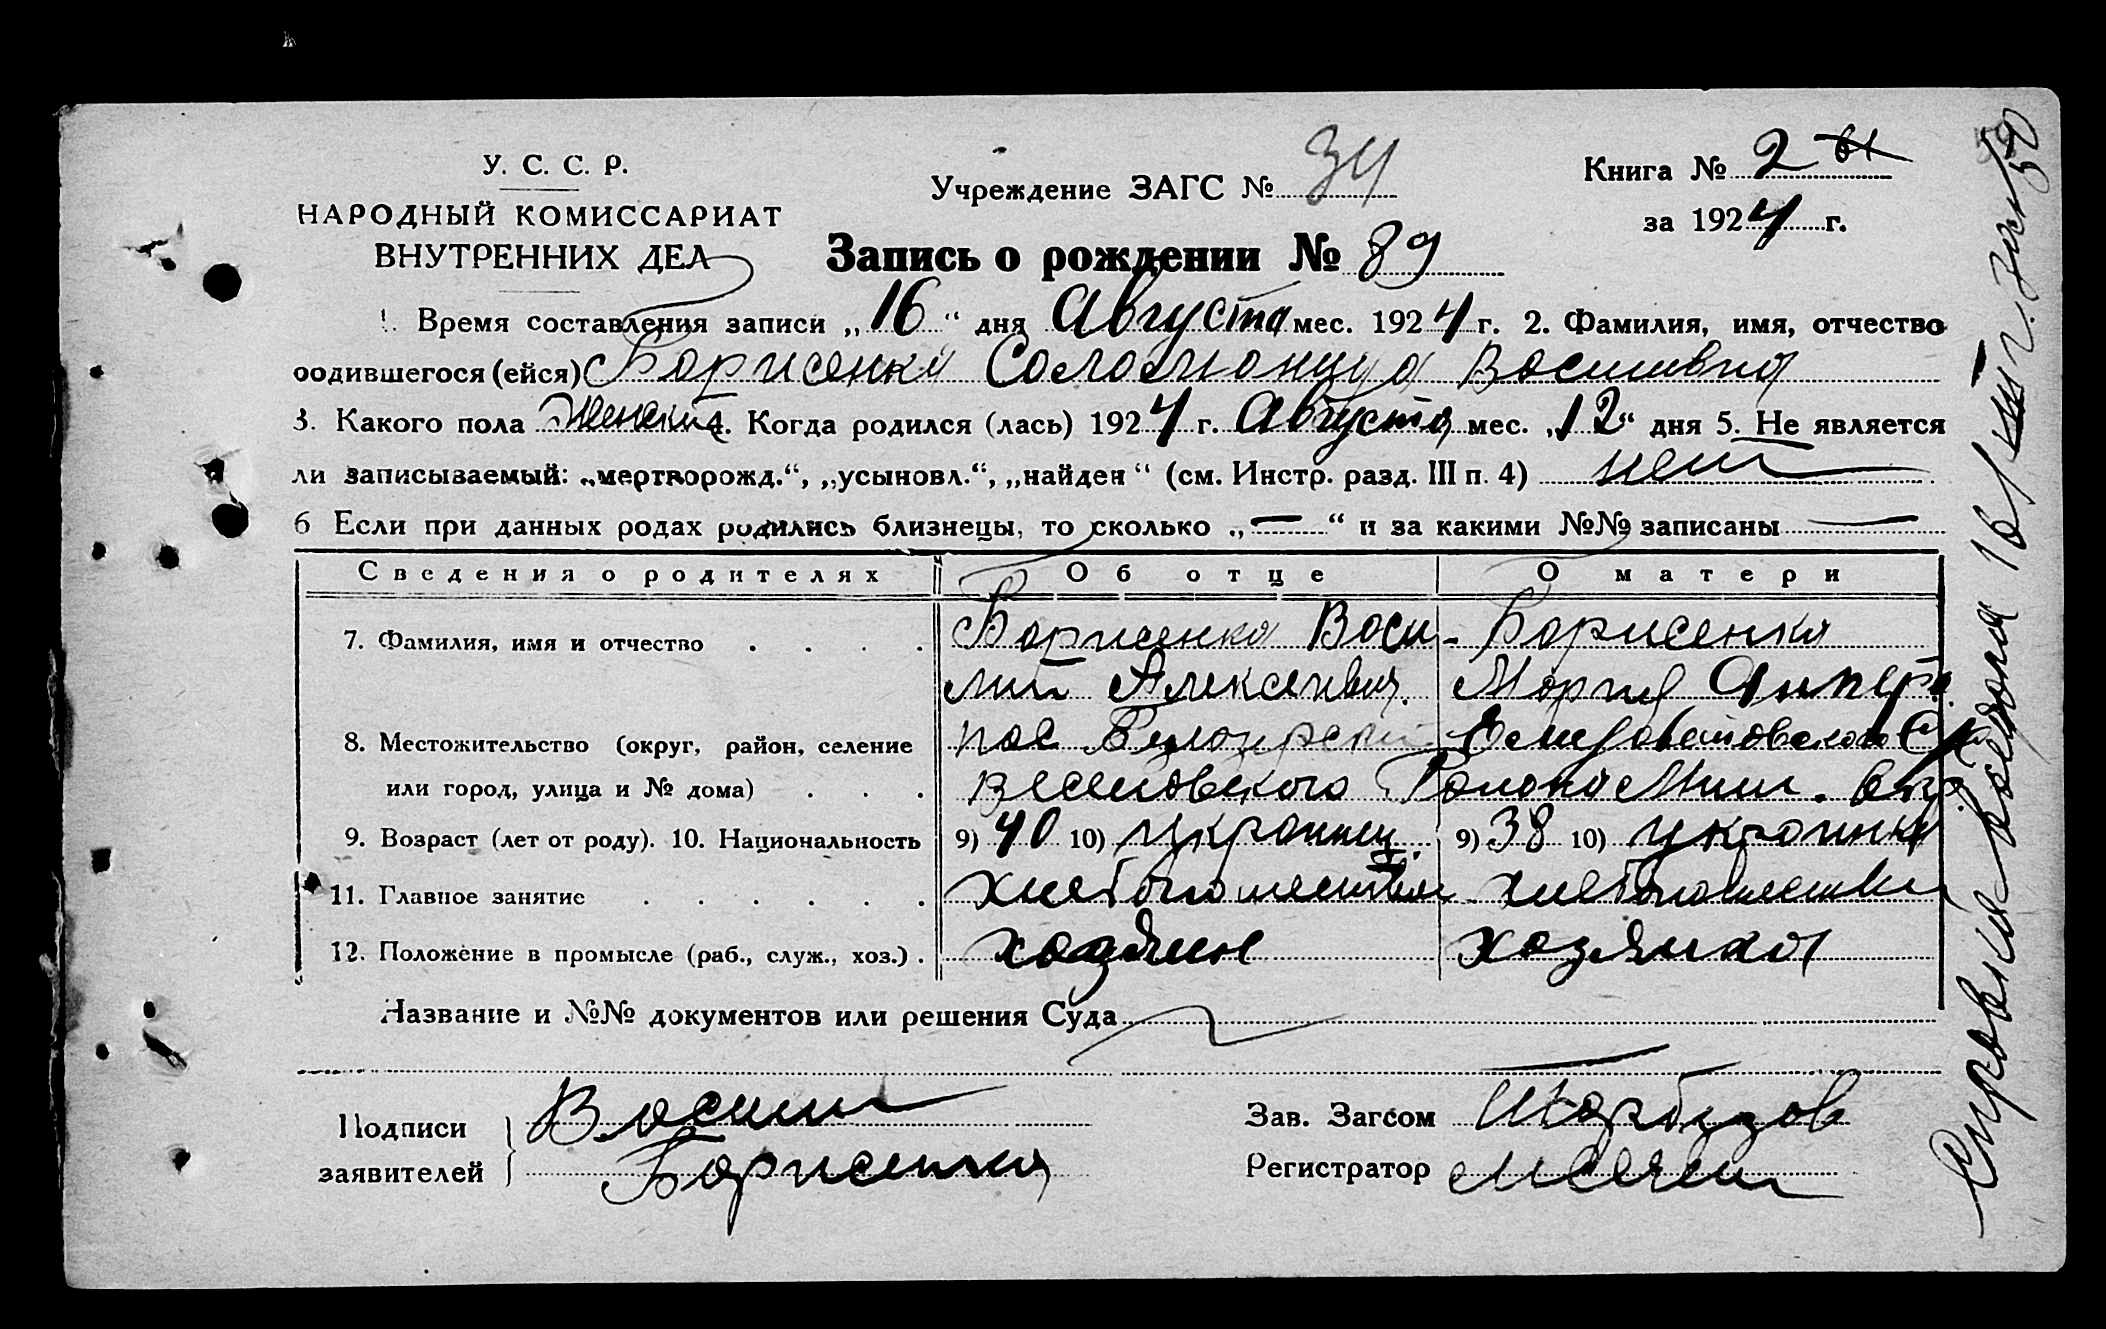 У. С. С. Р.
НАРОДНЫЙ КОМИССАРИАТ
ВНУТРЕННИХ ДЕЛ
Учреждение ЗАГС № 34
Книга № 2
за 1924 г.
Запись о рождении № 89
1. Время составления записи „16“ дня Августа мес. 1924 г. 2. Фамилия, имя, отчество
родившегося (ейся) Борисенко
3. Какого пола Женский 4. Когда родился (лась) 1924 г. Августа мес. „12“ дня 5. Не является
ли записываемый: „мертворожд.“, „усыновл.“, „найден“ (см. Инстр. разд. III п. 4) нет
6 Если при данных родах родились близнецы, то сколько „—“ и за какими №№ записаны —
Сведения о родителях Об отце О матери
7. Фамилия, имя и отчество . . . . Борисенко Васи- Борисенко
лий Алексеевич. Мария
8. Местожительство (округ, район, селение пос
или город, улица и № дома) . . . Веселовского Района
9. Возраст (лет от роду). 10. Национальность 9) 40 10) украинец. 9) 38 10) украинка
11. Главное занятие . . . . . . хлебопашество
12. Положение в промысле (раб., служ., хоз.) . хозяин хозяйка
Название и №№ документов или решения Суда
Подписи
заявителей
Василий
Борисенко
Зав. Загсом
Регистратор
Справка выдана 16/